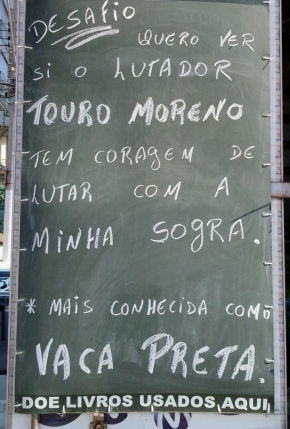 DESAFIO
QUERO VER
SI O LUTADOR
TOURO MORENO
TEM CORAGEM DE
LUTAR COM A
MINHA SOGRA.
* MAIS CONHECIDA COMO
VACA PRETA.
DOE LIVROS USADOS AQUI